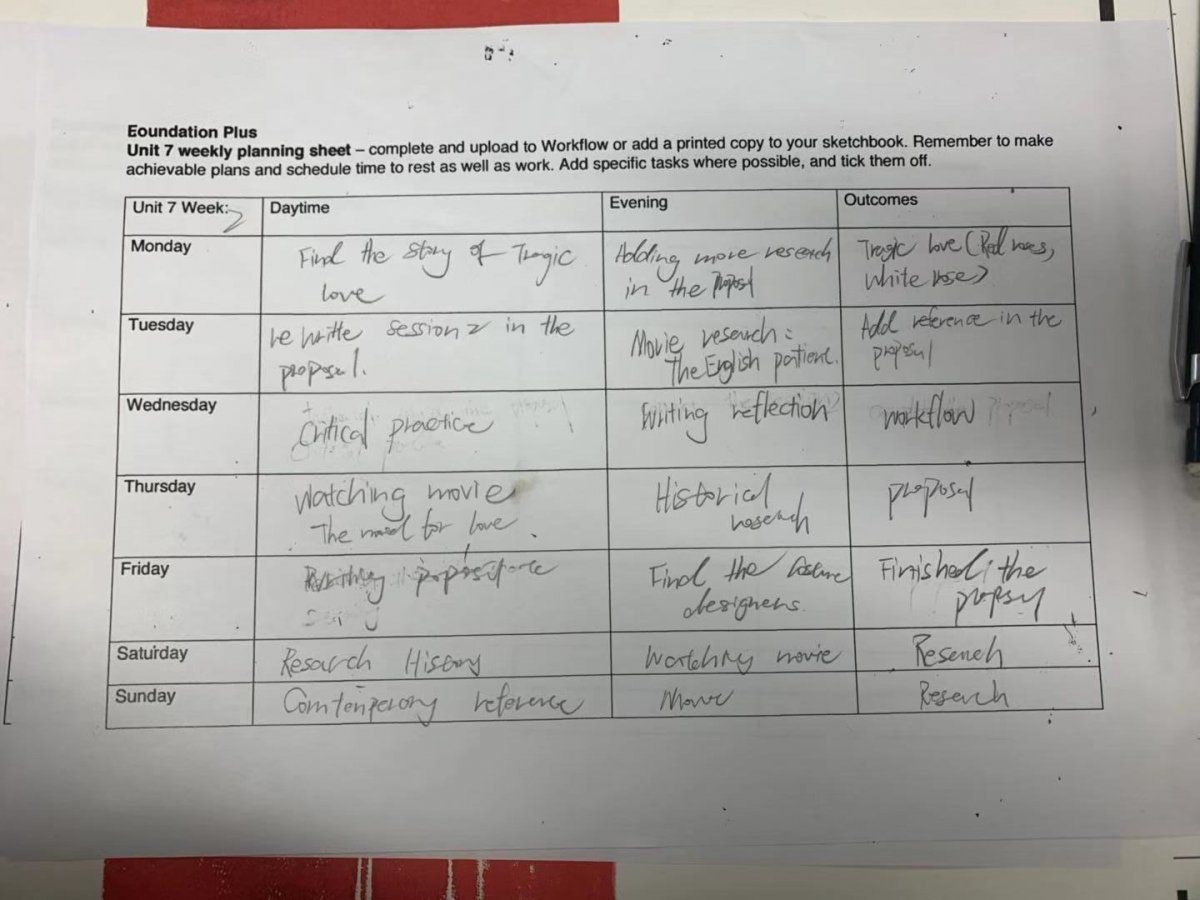 Eoundation Plus
Unit 7 weekly planning sheet – complete and upload to Workflow or add a printed copy to your sketchbook. Remember to make
achievable plans and schedule time to rest as well as work. Add specific tasks where possible, and tick them off.
Unit 7 Week: 2 Daytime Evening Outcomes
Monday
Find the story of Tragic
love
Adding more research
in the proposal
Tragic love (Red roses,
white rose)
Tuesday
re write session 2 in the
proposal.
Movie research:
The English patient.
Add reference in the
proposal
Wednesday
Critical practice
Writing reflection
workflow
Thursday
Watching movie
The mood for love.
Historical
research
proposal
Friday
Find the
designers.
Finished the
proposal
Saturday
Research History
Watching movie
Research
Sunday
Contemporary reference
Movie
Research